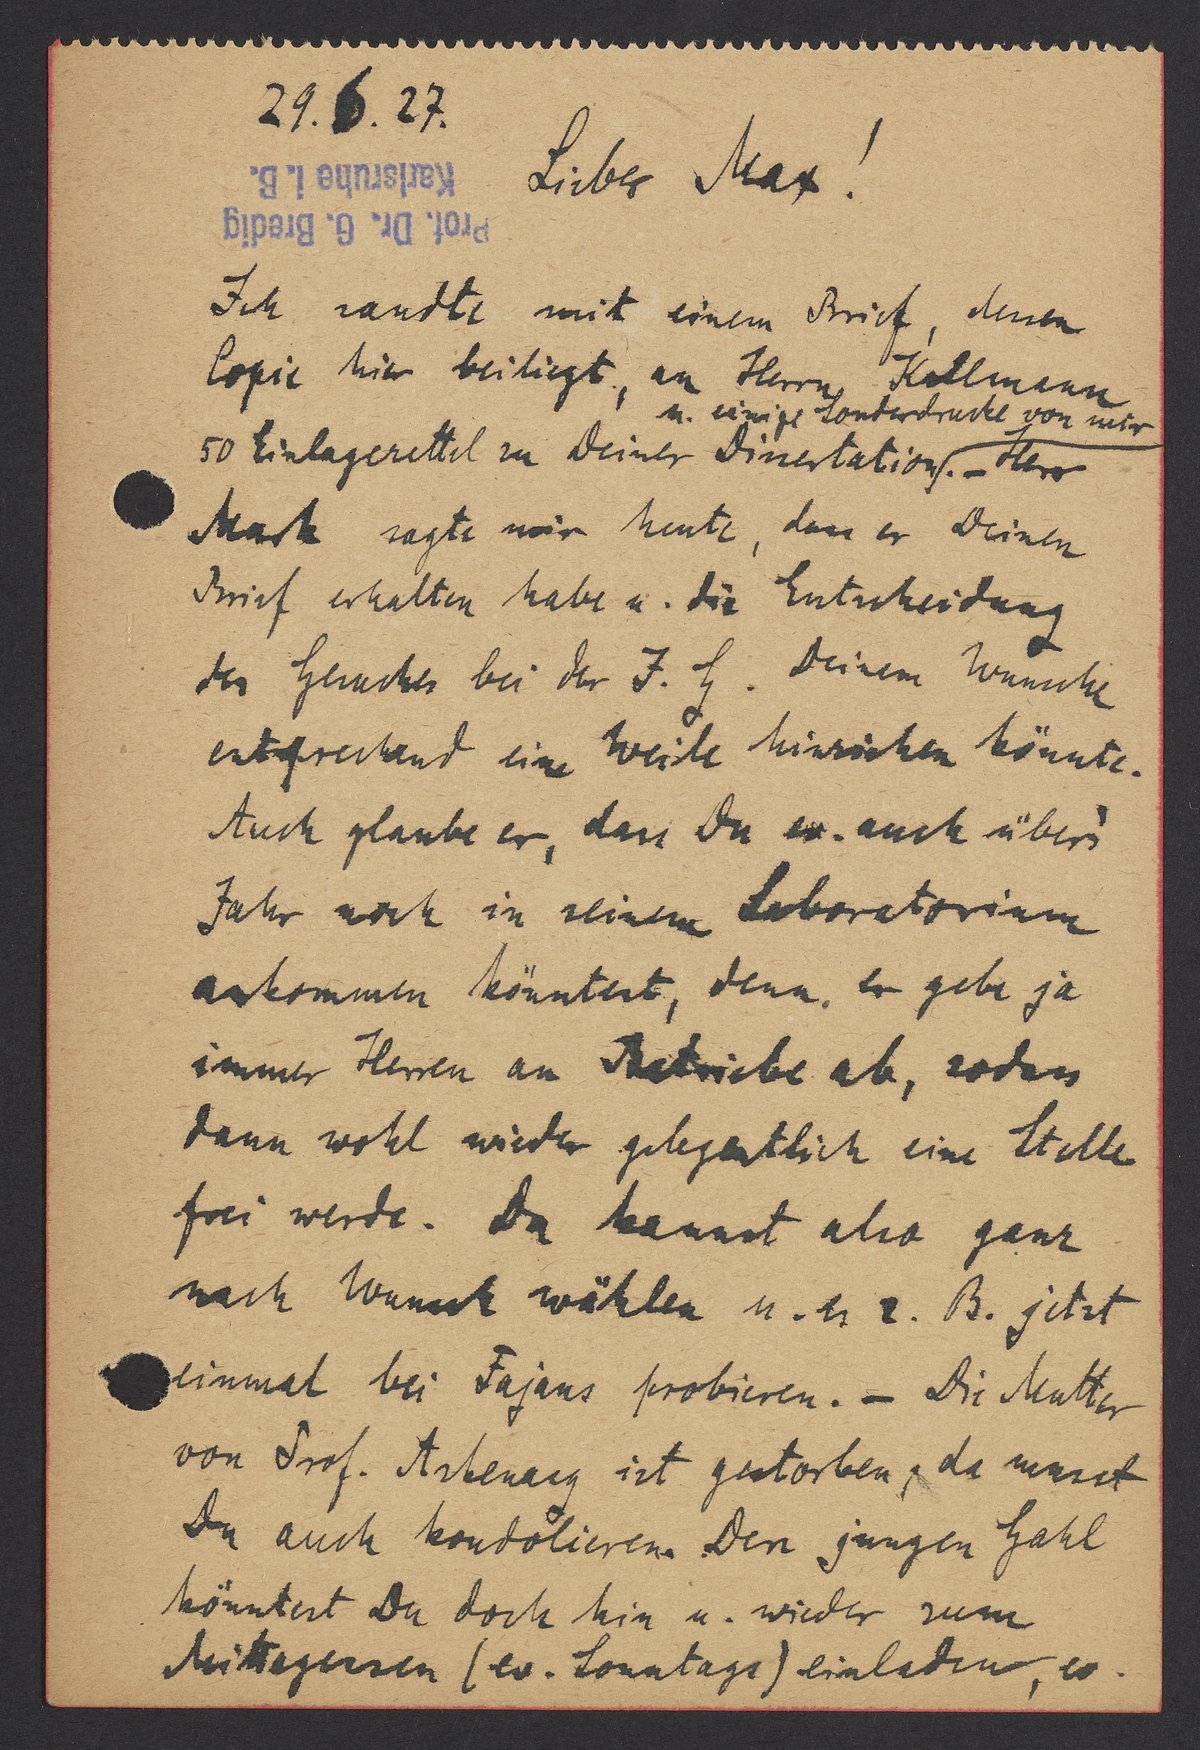 29.6.27.
Lieber Max!
Prof. Dr. G. Bredig
Karlsruhe i. B.
Ich sandte mit einem Brief, dessen
Copie hier beiliegt, an Herrn Kallmann
u. einige Sonderdrucke von mir
50 Einlagezettel zu Deiner Dissertation. – Herr
Mark sagte mir heute, dass er Deinen
Brief erhalten habe u. die Entscheidung
des Gesuches bei der I. G. Deinem Wunsche
entsprechend eine Weile hinziehen könnte.
Auch glaube er, dass Du ev. auch über's
Jahr noch in seinem Laboratorium
ankommen könntest, denn er gebe ja
immer Herren an Betriebe ab, sodass
dann wohl wieder gelegentlich eine Stelle
frei werde. Du kannst also ganz
nach Wunsch wählen u. es z. B. jetzt
einmal bei Fajans probieren. – Die Mutter
von Prof. Askenasy ist gestorben, da musst
Du auch kondolieren. Den jungen Gahl
könntest Du doch hin u. wieder zum
Mittagessen (ev. Sonntags) einladen, ev.